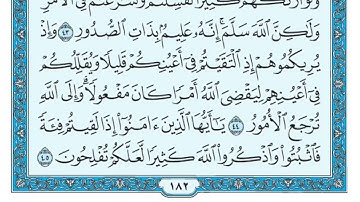 وَلَوْ أَرَىٰكَهُمْ كَثِيرًا لَّفَشِلْتُمْ وَلَتَنَٰزَعْتُمْ فِى ٱلْأَمْرِ
وَلَٰكِنَّ ٱللَّهَ سَلَّمَ ۗ إِنَّهُۥ عَلِيمٌۢ بِذَاتِ ٱلصُّدُورِ ٤٣ وَإِذْ
يُرِيكُمُوهُمْ إِذِ ٱلْتَقَيْتُمْ فِىٓ أَعْيُنِكُمْ قَلِيلًا وَيُقَلِّلُكُمْ
فِىٓ أَعْيُنِهِمْ لِيَقْضِىَ ٱللَّهُ أَمْرًا كَانَ مَفْعُولًا ۗ وَإِلَى ٱللَّهِ
تُرْجَعُ ٱلْأُمُورُ ٤٤ يَٰٓأَيُّهَا ٱلَّذِينَ ءَامَنُوٓا۟ إِذَا لَقِيتُمْ فِئَةً
فَٱثْبُتُوا۟ وَٱذْكُرُوا۟ ٱللَّهَ كَثِيرًا لَّعَلَّكُمْ تُفْلِحُونَ ٤٥
١٨٢